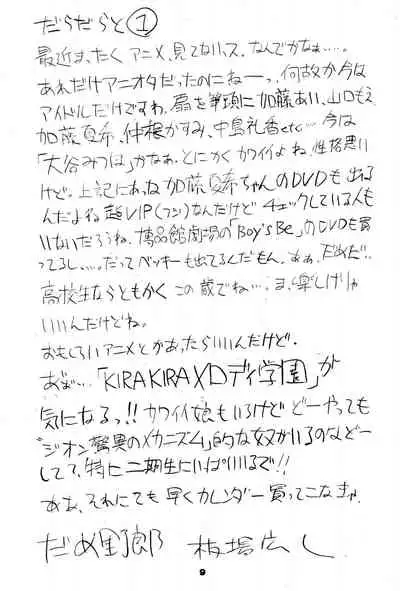 だらだらと①
最近まったくアニメ見てないス。なんでかなぁ……。
あれだけアニオタだったのにねーっ、何故か今は
アイドルだけですわ。扇を筆頭に加藤あい、山口もえ
加藤夏希、仲根かすみ、中島礼香etc…今は
「大谷みつほ」かなぁ。とにかくカワイイよね。性格悪い
けど。上記にある加藤夏希ちゃんのDVDも出る
んだよね超VIP(フン)なんだけどチェックしている人も
いないだろうね。博品館劇場の「Boy's Be」のDVDも買
ってるし…。だってベッキーも出てるんだもん。ああ、だめだ…
高校生ならともかくこの歳でね…。ま、楽しけりゃ
いいんだけどね。
おもしろいアニメとかあったらいいんだけど.
あぁ…「KIRAKIRAメロディ学園」が
気になるっ!!カワイイ娘もいるけどどーやっても
"ジオン驚異のメカニズム"的な奴がいるのなどー
して?特に二期生にいぱいいるで!!
ああ、それにしても早くカレンダー買ってこなきゃ.
だめ野郎 板場広し
9